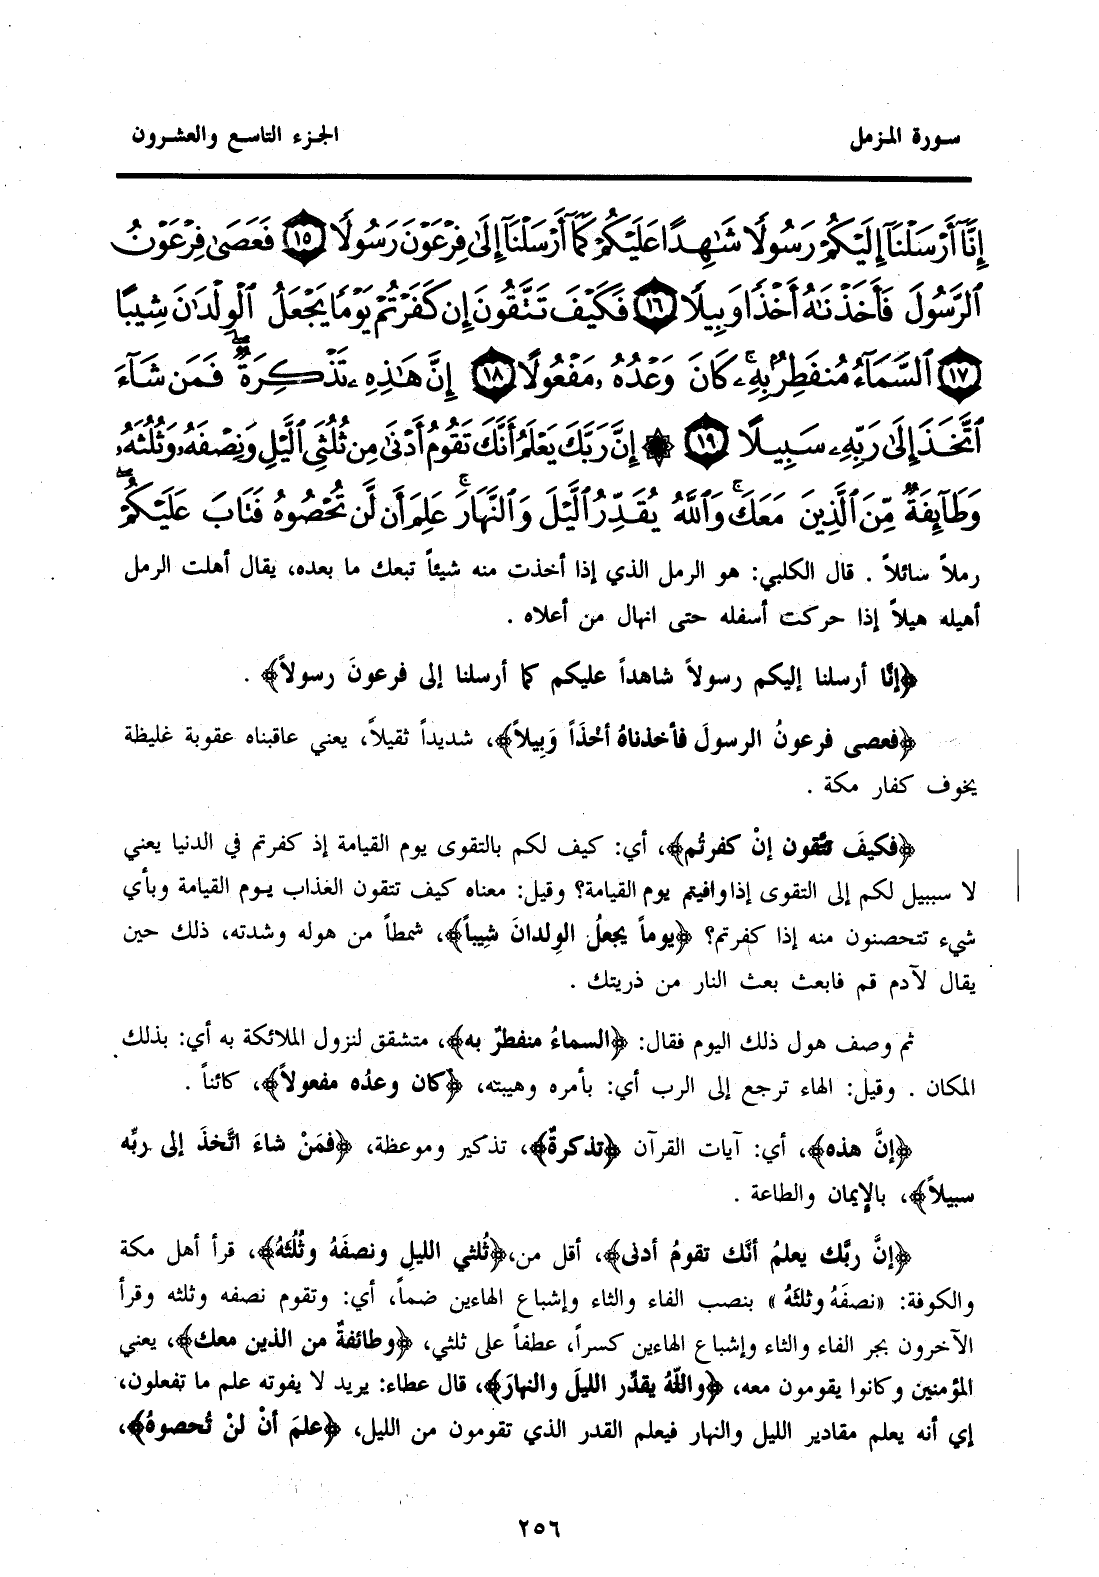 سورة المزمل
الجزء التاسع والعشرون
إِنَّآ أَرْسَلْنَآ إِلَيْكُمْ رَسُولًا شَٰهِدًا عَلَيْكُمْ كَمَآ أَرْسَلْنَآ إِلَىٰ فِرْعَوْنَ رَسُولًا ١٥ فَعَصَىٰ فِرْعَوْنُ
ٱلرَّسُولَ فَأَخَذْنَٰهُ أَخْذًا وَبِيلًا ١٦ فَكَيْفَ تَتَّقُونَ إِن كَفَرْتُمْ يَوْمًا يَجْعَلُ ٱلْوِلْدَٰنَ شِيبًا
١٧ ٱلسَّمَآءُ مُنفَطِرٌۢ بِهِۦۚ كَانَ وَعْدُهُۥ مَفْعُولًا ١٨ إِنَّ هَٰذِهِۦ تَذْكِرَةٌۖ فَمَن شَآءَ
ٱتَّخَذَ إِلَىٰ رَبِّهِۦ سَبِيلًا ١٩ ۞ إِنَّ رَبَّكَ يَعْلَمُ أَنَّكَ تَقُومُ أَدْنَىٰ مِن ثُلُثَىِ ٱلَّيْلِ وَنِصْفَهُۥ وَثُلُثَهُۥ
وَطَآئِفَةٌ مِّنَ ٱلَّذِينَ مَعَكَۚ وَٱللَّهُ يُقَدِّرُ ٱلَّيْلَ وَٱلنَّهَارَۚ عَلِمَ أَن لَّن تُحْصُوهُ فَتَابَ عَلَيْكُمْۖ
رملاً سائلاً . قال الكلبي: هو الرمل الذي إذا أخذت منه شيئاً تبعك ما بعده، يقال أهلت الرمل
أهيله هيلاً إذا حركت أسفله حتى انهال من أعلاه .
﴿إنَّا أرسلنا إليكم رسولاً شاهداً عليكم كما أرسلنا إلى فرعونَ رسولاً﴾ .
﴿فعصى فرعونُ الرسولَ فأخذناهُ أخْذَاً وَبِيلاً﴾، شديداً ثقيلاً، يعني عاقبناه عقوبة غليظة
يخوف كفار مكة .
﴿فكيفَ تتَّقون إنْ كفرتُم﴾، أي: كيف لكم بالتقوى يوم القيامة إذ كفرتم في الدنيا يعني
لا سببيل لكم إلى التقوى إذا وافيتم يوم القيامة؟ وقيل: معناه كيف تتقون العذاب يـوم القيامة وبأي
شيء تتحصنون منه إذا كفرتم؟ ﴿يوماً يجعلُ الوِلدانَ شِيباً﴾، شمطاً من هوله وشدته، ذلك حين
يقال لآدم قم فابعث بعث النار من ذريتك .
ثم وصف هول ذلك اليوم فقال: ﴿السماءُ منفطرٌ به﴾، متشقق لنزول الملائكة به أي: بذلك
المكان . وقيل: الهاء ترجع إلى الرب أي: بأمره وهيبته، ﴿كان وعدُه مفعولاً﴾، كائناً .
﴿إنَّ هذه﴾، أي: آيات القرآن ﴿تذكرةٌ﴾، تذكير وموعظة، ﴿فمَنْ شاءَ اتَّخذَ إلى ربِّه
سبيلاً﴾، بالإيمان والطاعة .
﴿إنَّ ربَّك يعلمُ أنَّك تقومُ أدنى﴾، أقل من، ﴿ثُلثي الليلِ ونصفَهُ وثُلُثَهُ﴾، قرأ أهل مكة
والكوفة: «نصفَهُ وثلثَهُ» بنصب الفاء والثاء وإشباع الهاءين ضماً، أي: وتقوم نصفه وثلثه وقرأ
الآخرون بجر الفاء والثاء وإشباع الهاءين كسراً، عطفاً على ثلثي، ﴿وطائفةٌ من الذين معك﴾، يعني
المؤمنين وكانوا يقومون معه، ﴿واللّهُ يقدِّر الليلَ والنهارَ﴾، قال عطاء: يريد لا يفوته علم ما تفعلون،
إي أنه يعلم مقادير الليل والنهار فيعلم القدر الذي تقومون من الليل، ﴿علمَ أنْ لنْ تُحصوهُ﴾،
٢٥٦